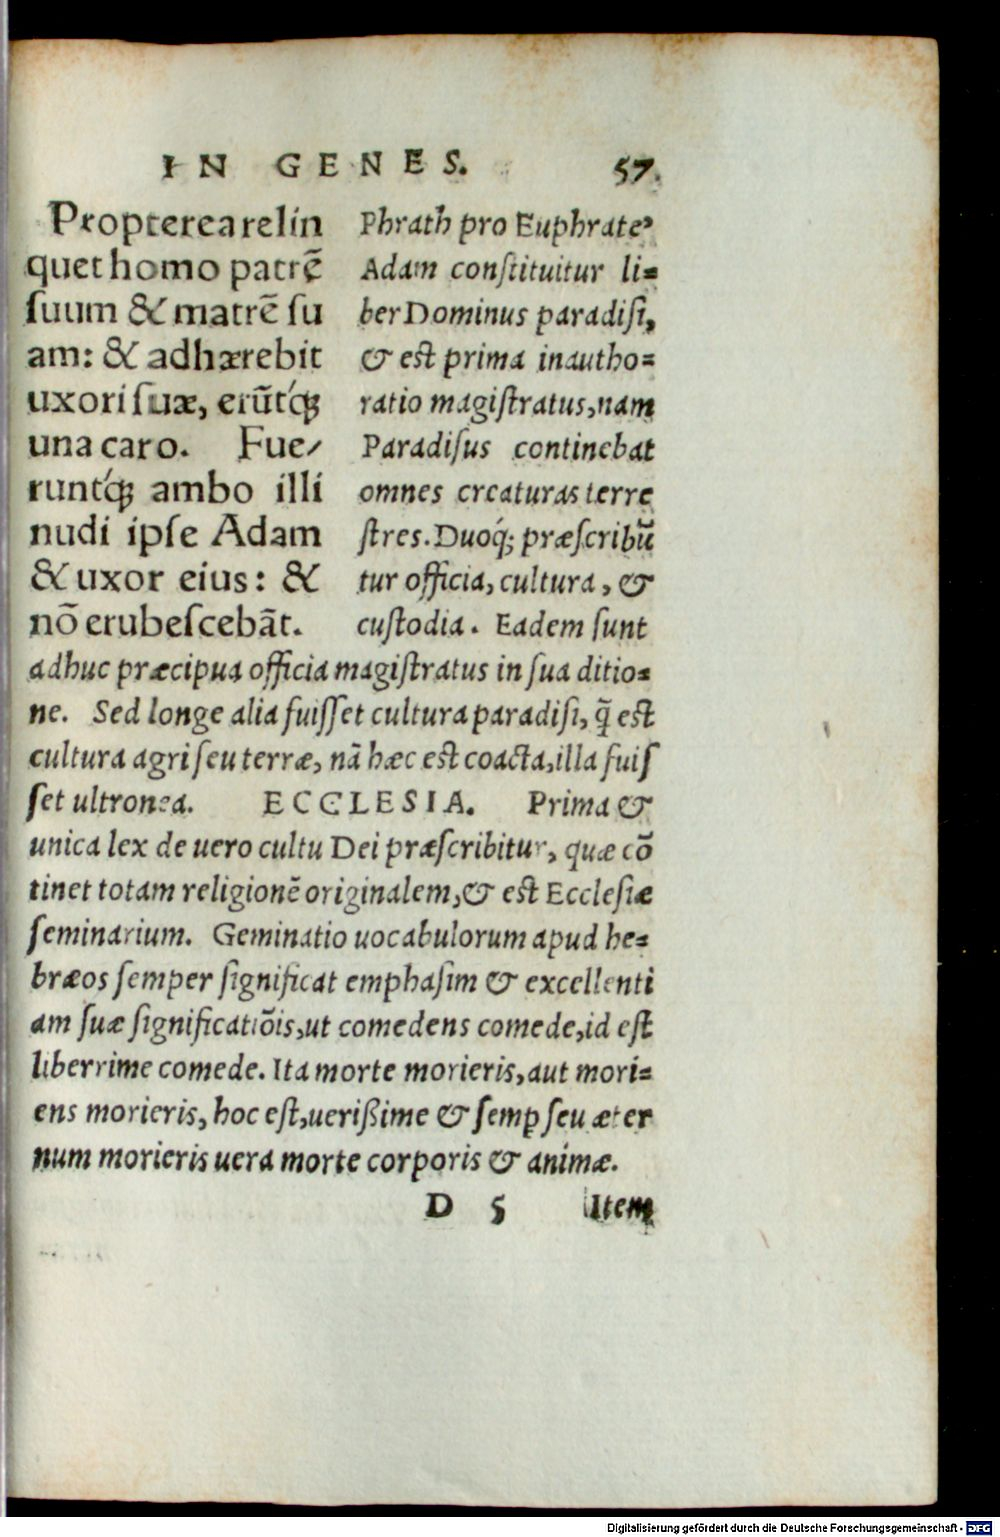 IN GENES. 57.
Propterea relin
quet homo patrē
ſuum & matrē ſu
am: & adhærebit
uxori ſuæ, erūtq́ꝫ
una caro. Fue/
runtq́ꝫ ambo illi
nudi ipſe Adam
& uxor eius: &
nō erubeſcebāt.
Phrath pro Euphrate
Adam conſtituitur li=
ber Dominus paradiſi,
& eſt prima inautho=
ratio magiſtratus, nam
Paradiſus continebat
omnes creaturas terre
ſtres. Duoq́; præſcribū
tur officia, cultura, &
cuſtodia. Eadem ſunt
adhuc præcipua officia magiſtratus in ſua ditio=
ne. Sed longe alia fuiſſet cultura paradiſi, q̄ eſt
cultura agri ſeu terræ, nā hæc eſt coacta, illa fuiſ
ſet ultronea. ECCLESIA. Prima &
unica lex de uero cultu Dei præſcribitur, quæ cō
tinet totam religionē originalem, & eſt Eccleſiæ
ſeminarium. Geminatio uocabulorum apud he=
bræos ſemper ſignificat emphaſim & excellenti
am ſuæ ſignificatiōis, ut comedens comede, id eſt
liberrime comede. Ita morte morieris, aut mori=
ens morieris, hoc eſt, uerißime & ſemꝑ ſeu æter
num morieris uera morte corporis & animæ.
D 5 Item
Digitalisierung gefördert durch die Deutsche Forschungsgemeinschaft - DFG